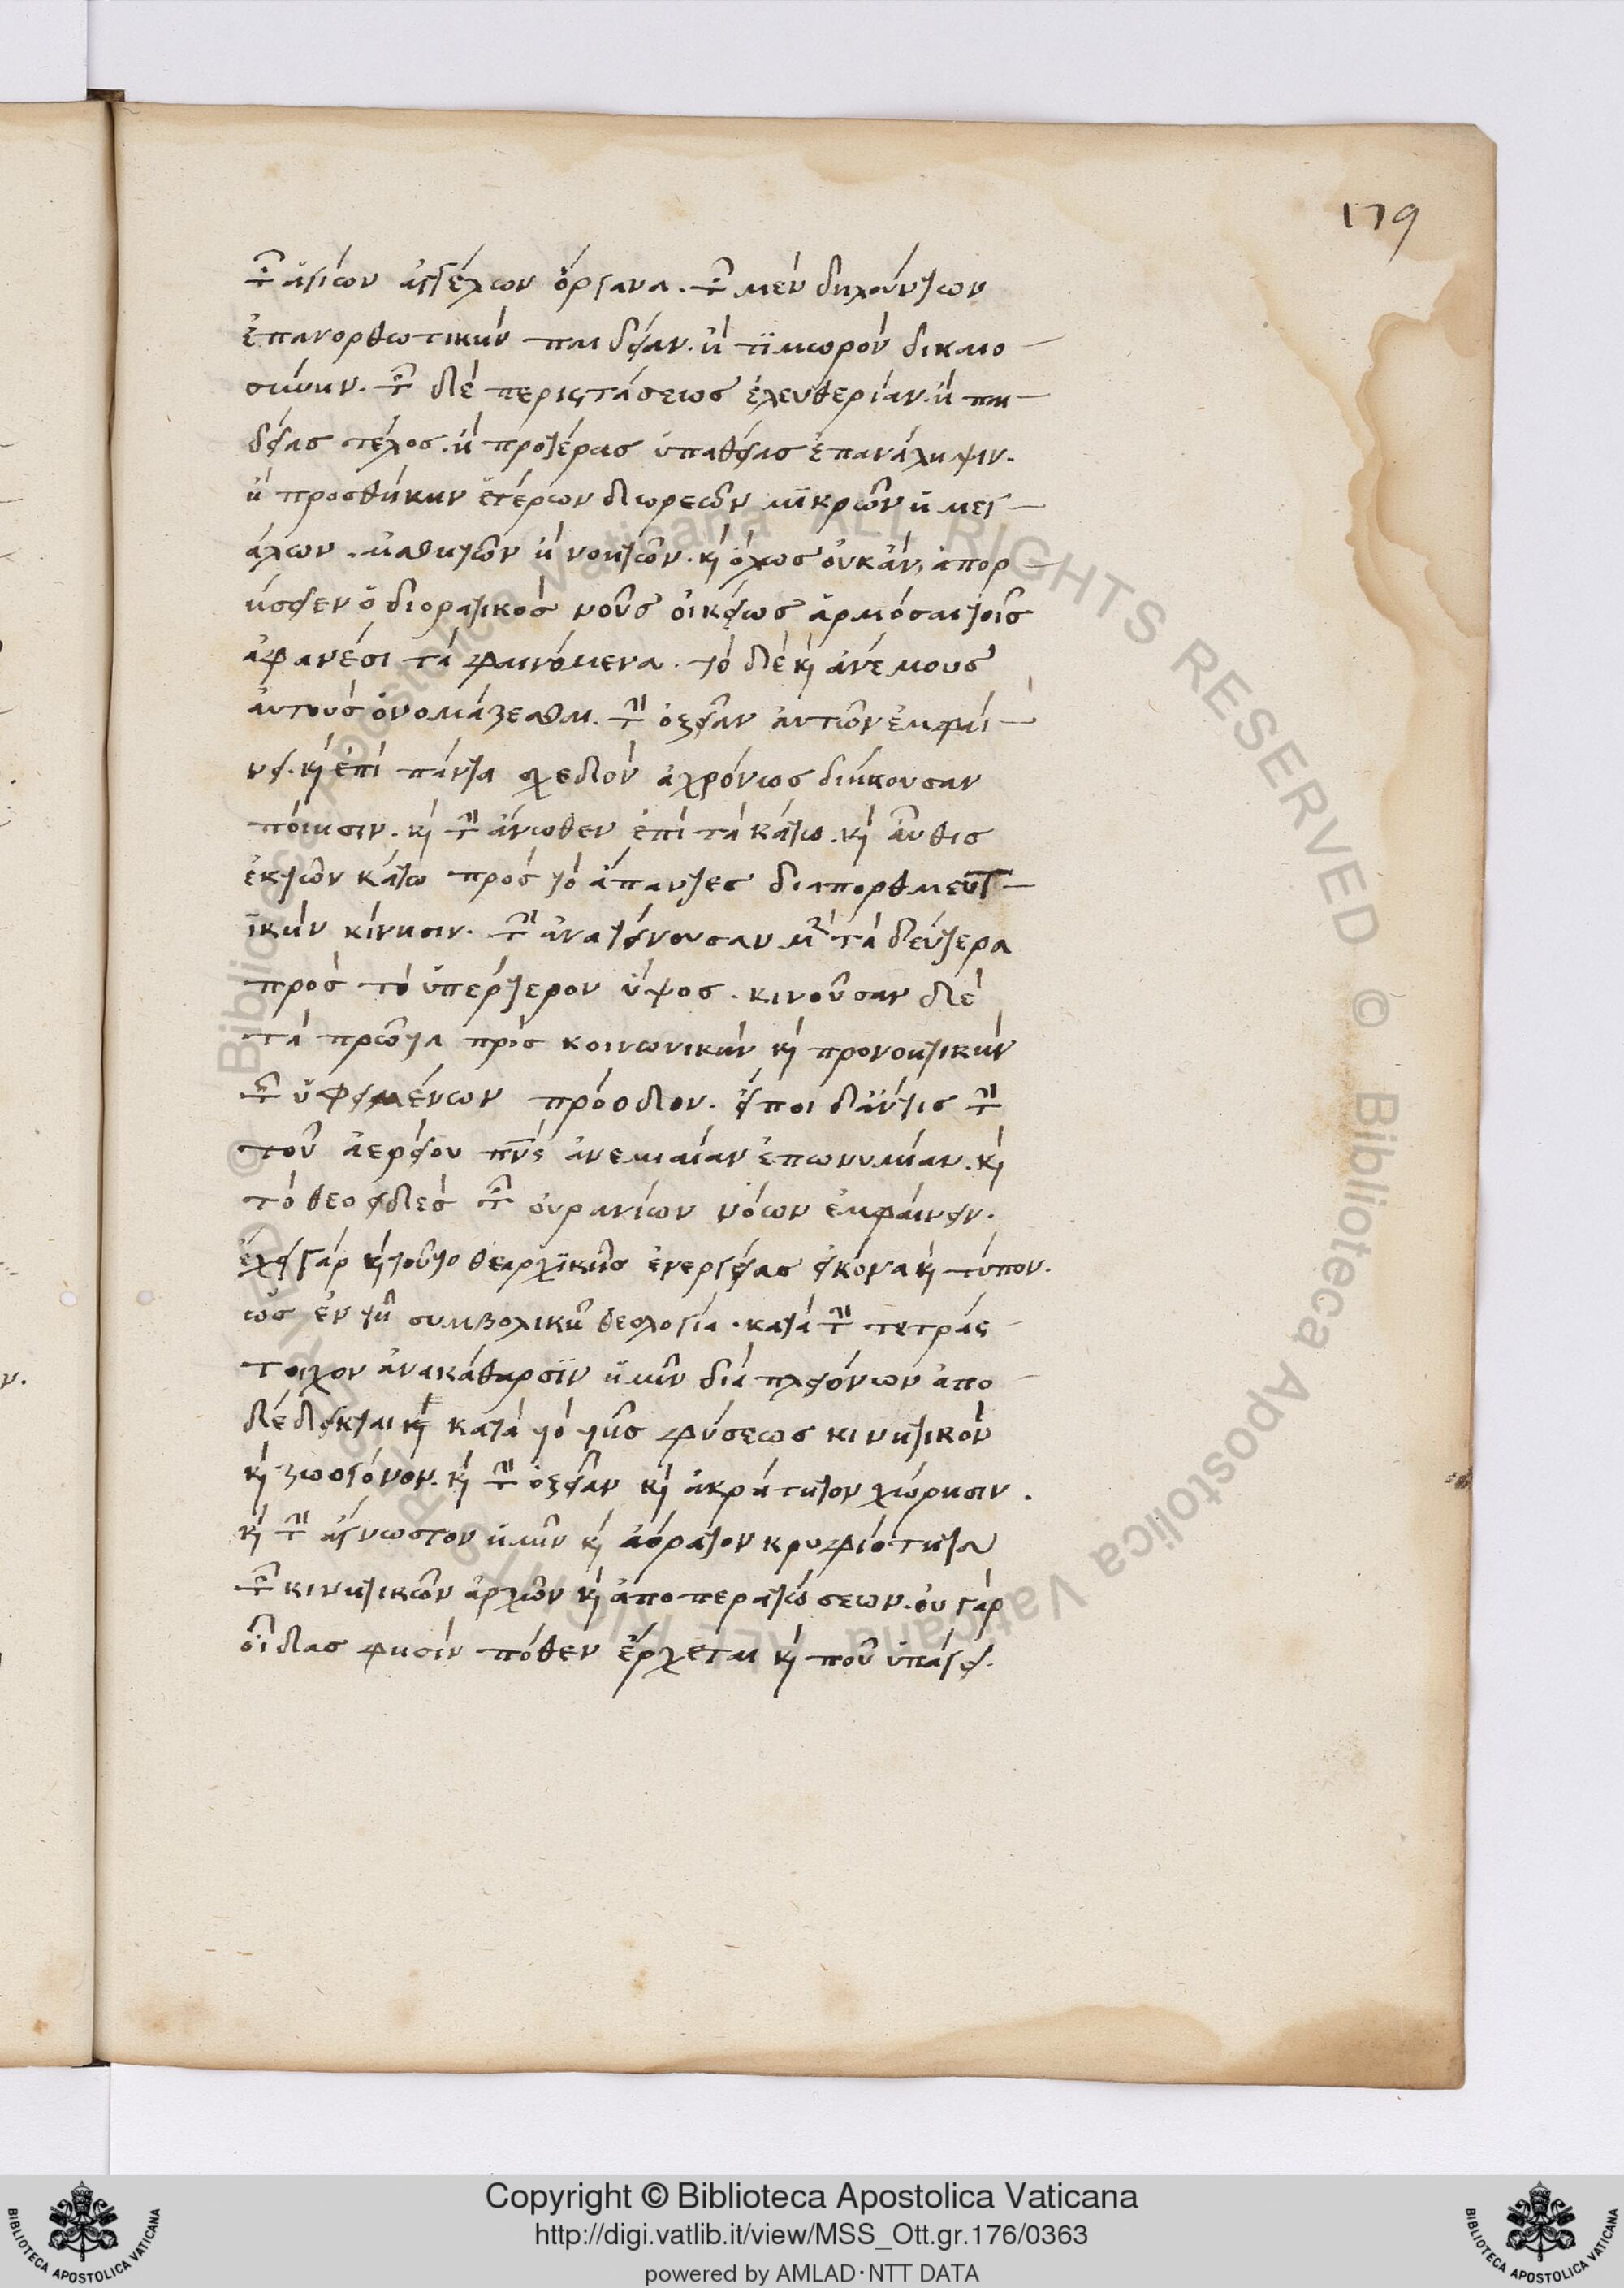 179
τῶν ἁγίων ἀγγέλων ὄργανα. τῶν μὲν δηλούντων
ἐπανορθωτικὴν παιδείαν. ἢ τϊμωρὸν δικαιο
σύνην. τῶν δὲ περιστάσεως ἐλευθερίαν. ἢ παι
δείας τέλος. ἢ προτέρας εὐπαθείας ἐπανάληψιν.
ἢ προσθήκην ἑτέρων δωρεῶν μϊκρῶν ἢ μεγ
άλων. αἰσθητῶν ἢ νοητῶν. καὶ ὅλως οὐκ ἂν, ἀπορ
ήσειεν ὁ διορατικὸς νοῦς οἰκείως ἁρμόσαι τοῖς
ἀφανέσι τὰ φαινόμενα. τὸ δὲ καὶ ἀνέμους
αὐτοὺς ὀνομάζεσθαι. τὴν ὀξεῖαν αὐτῶν ἐμφαί
νει. καὶ ἐπὶ πάντα σχεδὸν ἀχρόνως διήκουσαν
πόιησιν. καὶ τὴν ἄνωθεν ἐπὶ τὰ κάτω. καὶ αὖθις
ἐκ τῶν κάτω πρὸς τὸ ἄπαντες διαπορθμευτ
ϊκὴν κίνησιν. τὴν ἀνατείνουσαν μὲν τὰ δεύτερα
πρὸς τὸ ὑπέρτερον ὕψος. κινοῦσαν δὲ
τὰ πρῶτα πρὸς κοινωνικὴν καὶ προνοητικὴν
τῶν ὑφειμένων πρόοδον. εἴποι δ' ἄν τις τὴν
τοῦ ἀερίου πνς ἀνεμιαίαν ἐπωνυμίαν. καὶ
τὸ θεοειδὲς τῶν οὐρανίων νόων ἐμφαίνειν.
ἔχει γὰρ καὶ τοῦτο θεαρχϊκῆς ἐνεργείας εἰκόνα καὶ τύπον.
ὡς ἐν τῆ συμβολικῆ θεολογία. κατὰ τὴν τετράς
τοιχον ἀνακάθαρσϊν ἡμῖν διὰ πλειόνων ἀπο
δέδεικται καὶ κατὰ τὸ τῆς φύσεως κινητικὸν
καὶ ζωογόνον. καὶ τὴν ὀξεῖαν καὶ ἀκράτητον χώρησιν.
καὶ τὴν ἄγνωστον ἡμῖν καὶ ἀόρατον κρυφιότητα
τῶν κινητικῶν ἀρχῶν καὶ ἀποπερατώσεων. οὐ γὰρ
οἶδας φησὶν πόθεν ἔρχεται καὶ ποῦ ὑπάγει.
© Biblioteca Apostolica Vaticana ALL RIGHTS RESERVED © Biblioteca Apostolica Vaticana ALL RIGHTS RESERVED
BIBLIOTECA APOSTOLICA VATICANA
Copyright © Biblioteca Apostolica Vaticana
http://digi.vatlib.it/view/MSS_Ott.gr.176/0363
powered by AMLAD·NTT DATA
BIBLIOTECA APOSTOLICA VATICANA